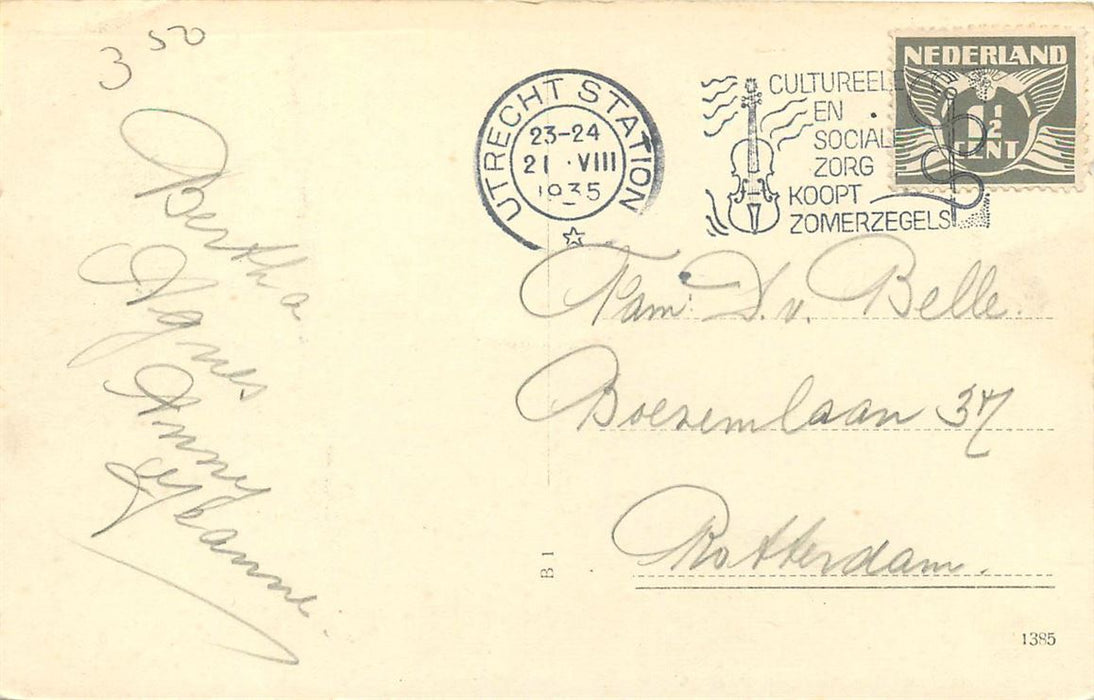 3 50
Bertha
Agnes
Anny
UTRECHT STATION
23-24
21 VIII
1935
CULTUREELE
EN
SOCIALE
ZORG
KOOPT
ZOMERZEGELS
NEDERLAND
1½
CENT
Fam. D. v. Belle.
Boezemlaan 37
Rotterdam.
B 1
1385